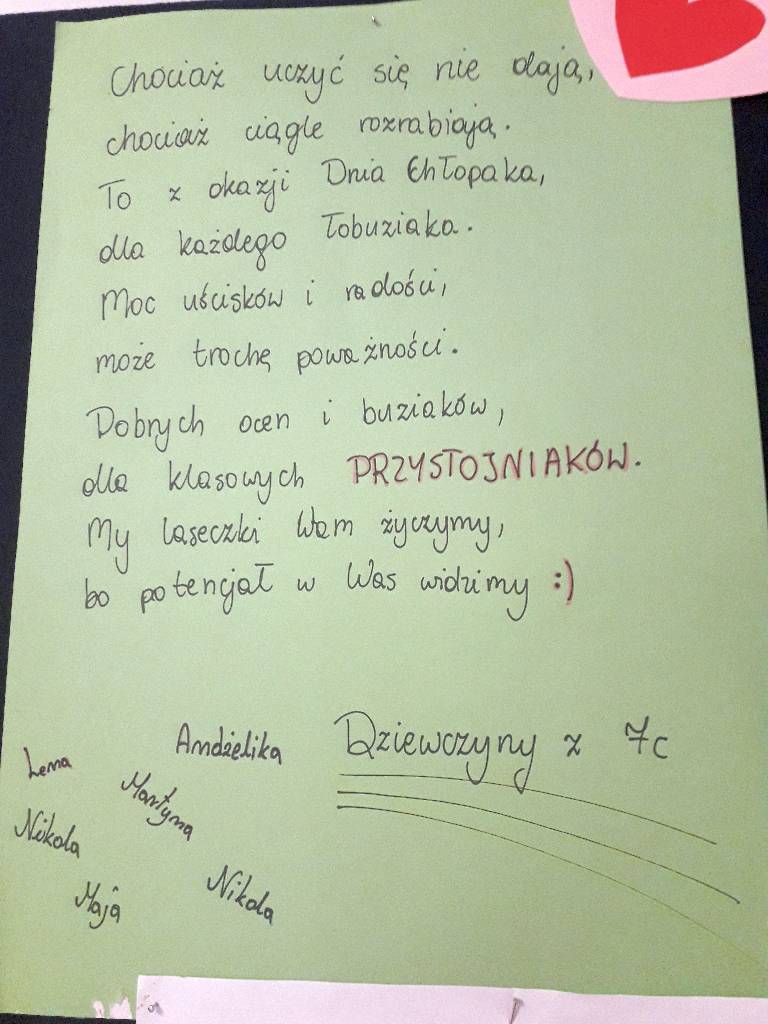 Chociaż uczyć się nie dają,
chociaż ciągle rozrabiają.
To z okazji Dnia Chłopaka,
dla każdego łobuziaka.
Moc uścisków i radości,
może trochę poważności.
Dobrych ocen i buziaków,
dla klasowych PRZYSTOJNIAKÓW.
My laseczki Wam życzymy,
bo potencjał w Was widzimy :)
Dziewczyny z 7c
Andżelika
Lena
Martyna
Nikola
Maja
Nikola